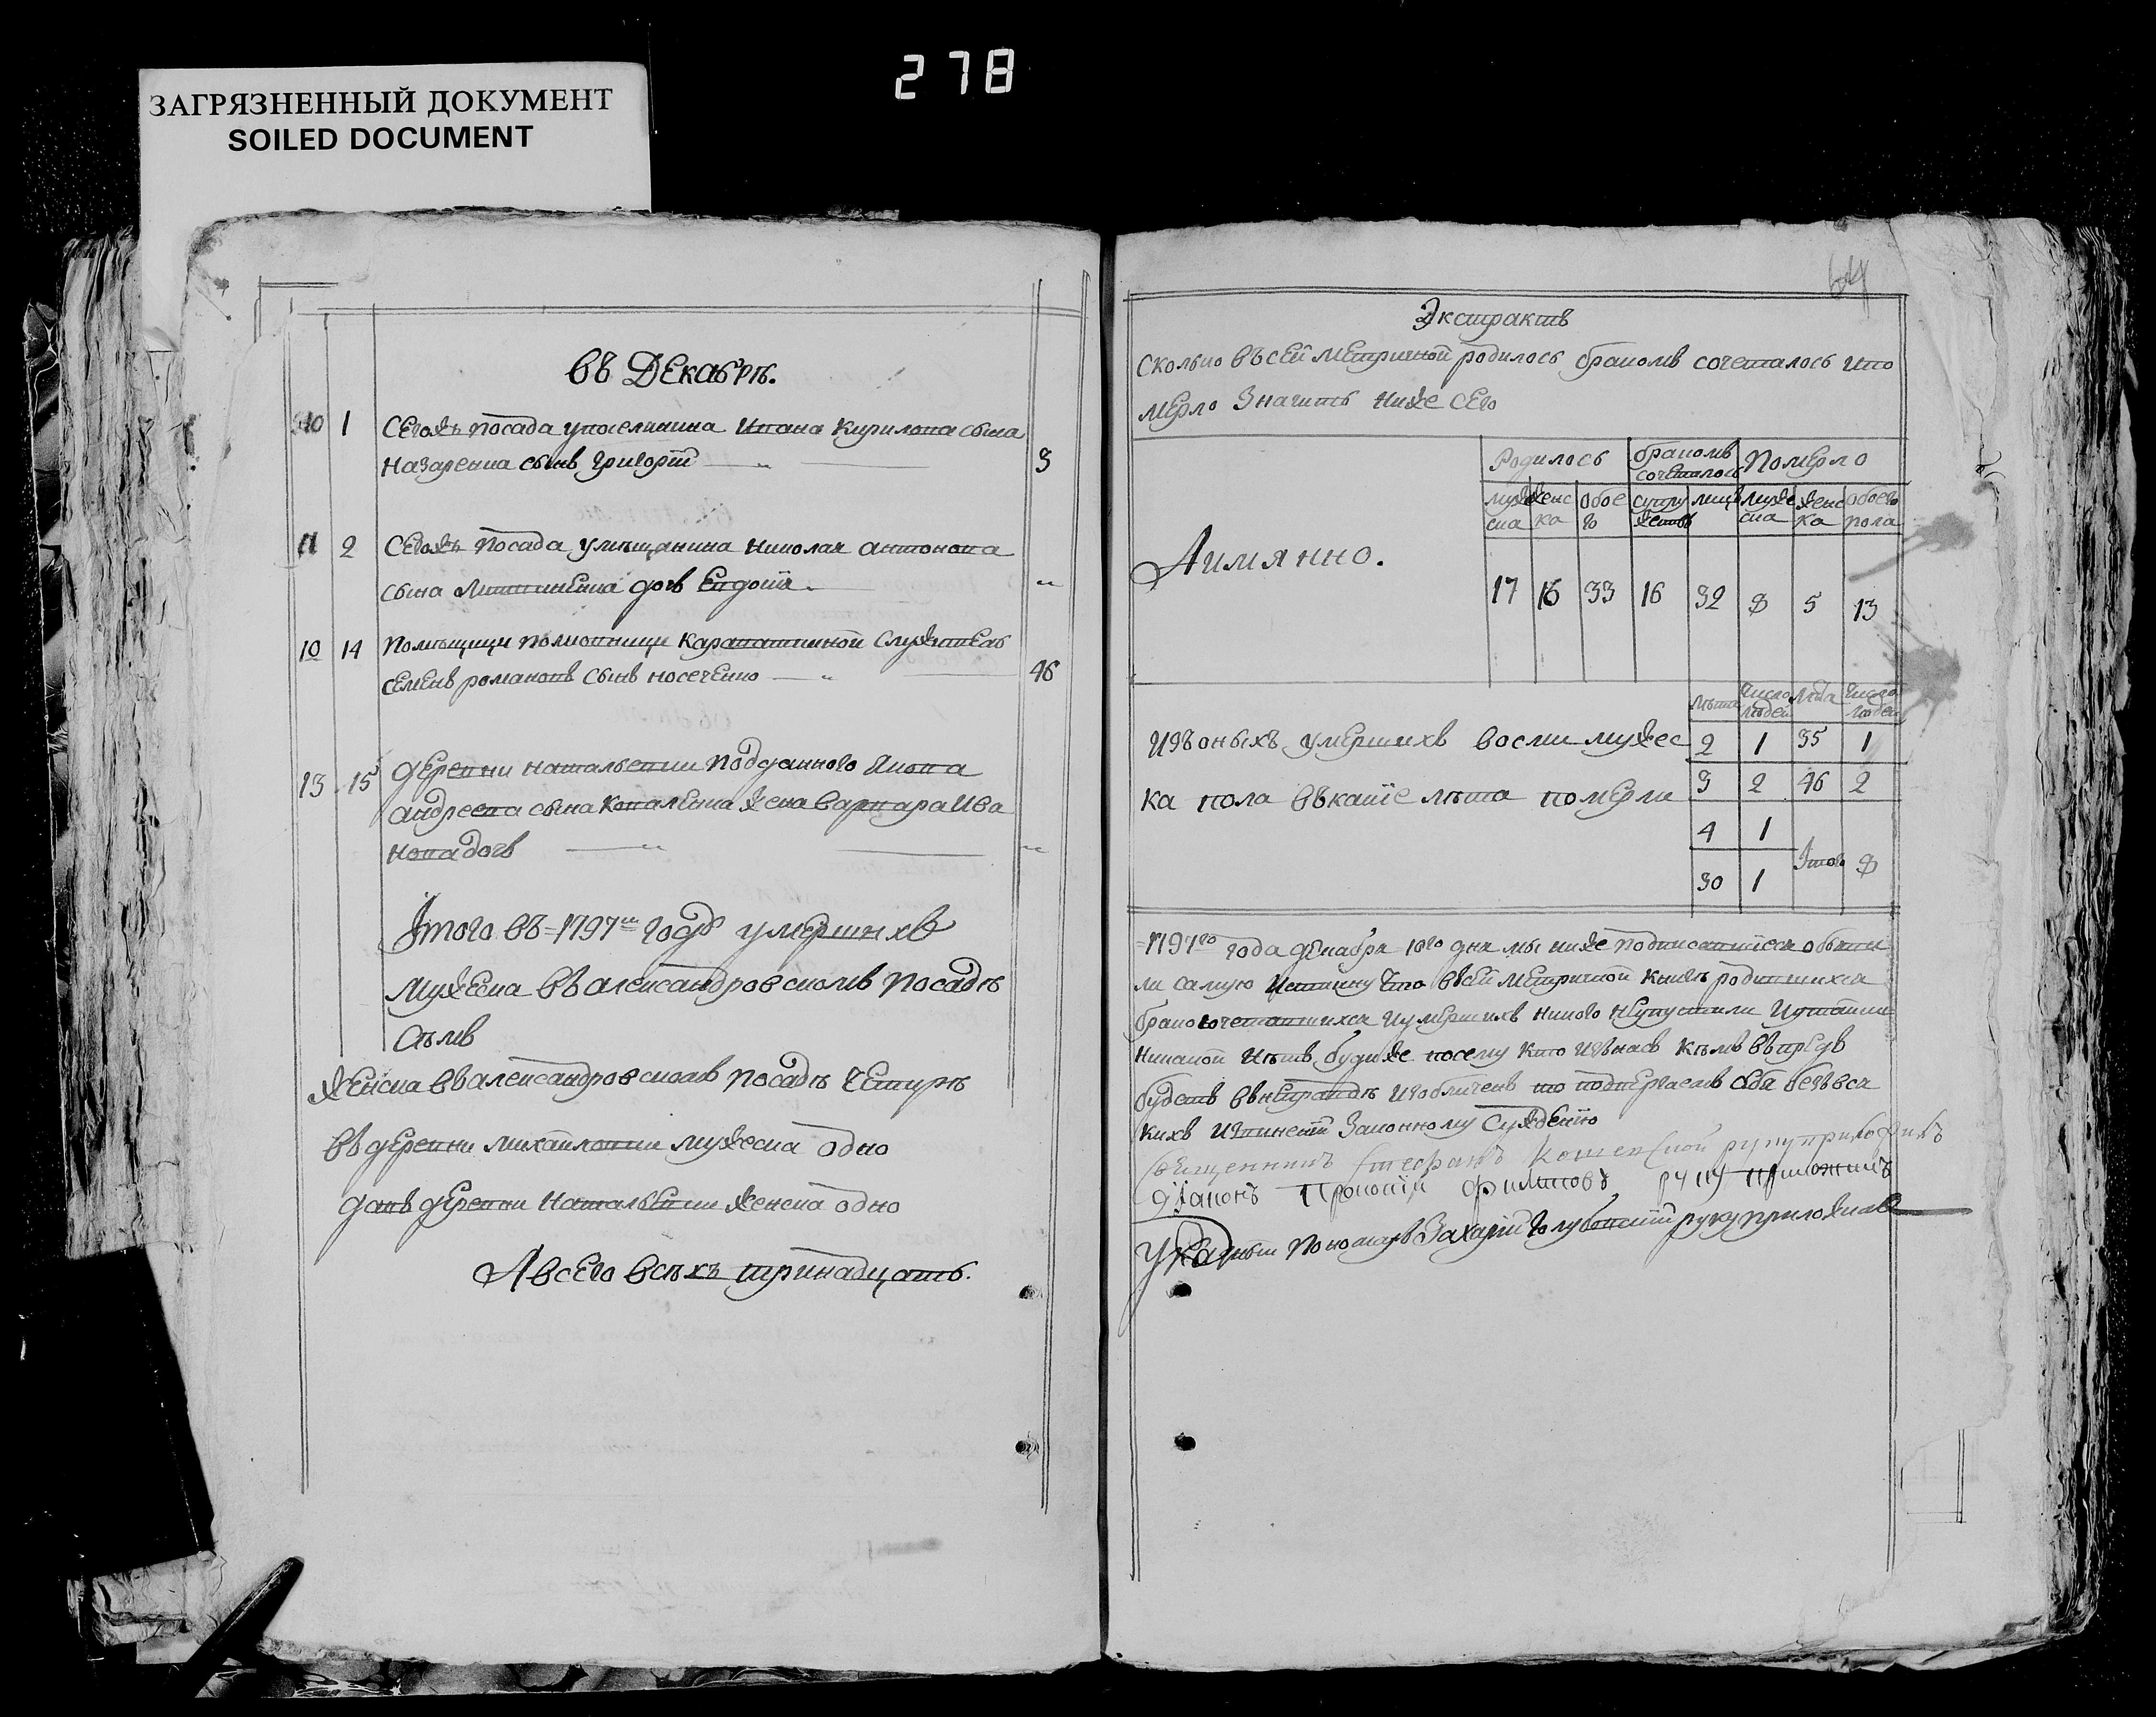 278
ЗАГРЯЗНЕННЫЙ ДОКУМЕНТ
SOILED DOCUMENT
въ Декабрѣ.
10 1 Сегожъ посада упоселянина Ивана Кирилова сына
Назаренка сынъ Григорій 3
11 2 Сегожъ посада умѣщанина Николая антонова
сына дочь Евдокія
10 14 Помѣщици полковници служитель
семенъ романовъ сынъ носеченко 46
13 15 деревни натальевки подданного
андреева сына коваленка жена варвара Ива
нова дочь
Jтого въ 1797м годѣ умершихъ
мужеска въ александровскомъ посадѣ
семъ
женска въ александровскомъ посадѣ четыре
въ деревни михайловки мужеска одно
давъ деревни натальевки женска одно
Авсего всѣхъ тринадцать.
64
Экстрактъ
сколько въсей метричной родилось бракомъ сочеталось ипо
мерло значитъ ниже сего
Родилось бракомъ сочеталось Померло
мужеска женска обоего супружествъ лицъ мужеска женска обоего пола
Аимянно.
17 16 33 16 32 8 5 13
лѣта число людей лѣта число людей
Изъоныхъ умершихъ восми мужес
ка пола въкакіе лѣта померли
2 1 35 1
3 2 46 2
4 1
Jтого 8
30 1
1797го года декабря 10го дня мы ниже подписавшіеся объяви
ли самую истинну что въсей метричной книгѣ родившихся
бракосочетавшихся иумершихъ никого неупустили иутайки
никакой нѣтъ, будиже посему кто изънасъ кѣмъ въпредь
будетъ въ неправдѣ изобличенъ то подвергаемъ себя безъвся
кихъ извиненій законному сужденію
священникъ стефанъ руку приложилъ
діаконъ Прокопій филиповъ руку приложилъ
указный пономарь Захарій Голубовскій руку приложилъ